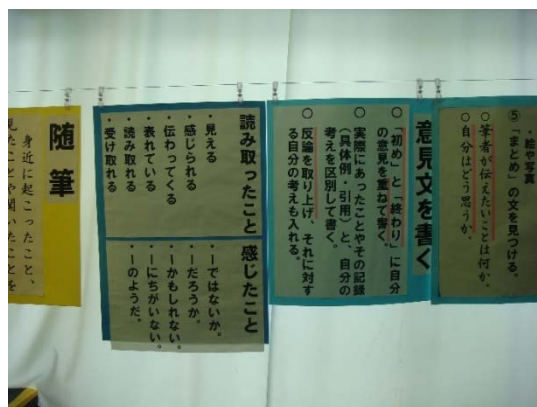 ・絵や写真
⑤「まとめ」の文を見つける。
○筆者が伝えたいことは何か。
○自分はどう思うか。
意見文を書く
○「初め」と「終わり」に自分
の意見を重ねて書く。
○実際にあったことやその記録
(具体例・引用)と、自分の
考えを区別して書く。
○反論を取り上げ、それに対す
る自分の考えも入れる。
読み取ったこと
・見える
・感じられる
・伝わってくる
・表れている
・読み取れる
・受け取れる
感じたこと
・ーではないか。
・ーだろうか。
・ーかもしれない。
・ーにちがいない。
・ーのようだ。
随筆
身近に起こったこと、
見たことや聞いたことを